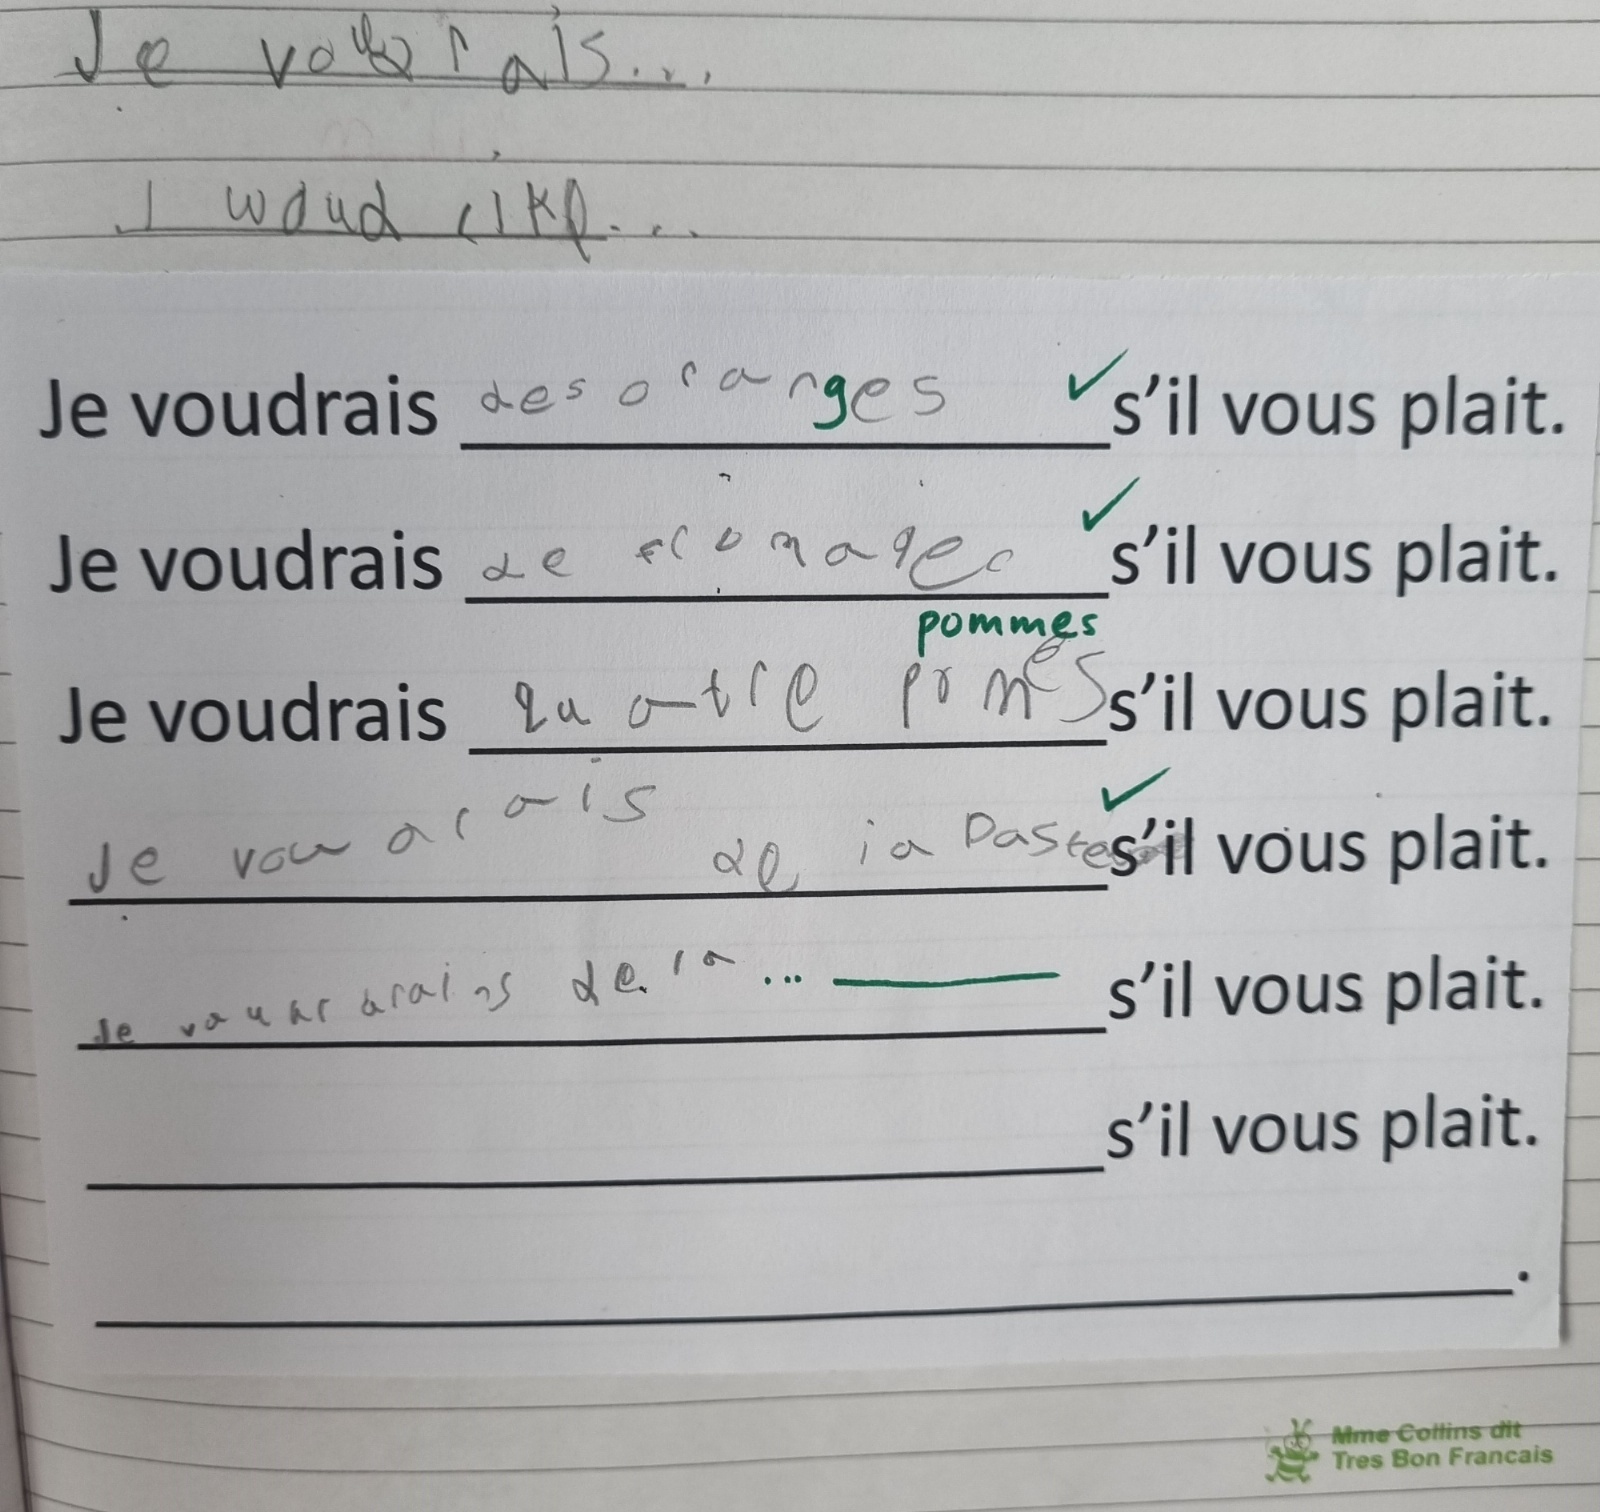 Je voudrais...
I woud like...
Je voudrais des oranges s'il vous plait.
Je voudrais de fromages s'il vous plait.
pommes
Je voudrais quatre promes s'il vous plait.
Je voudrais de la Paste s'il vous plait.
Je de la ... s'il vous plait.
s'il vous plait.
Mme Collins dit
Tres Bon Francais